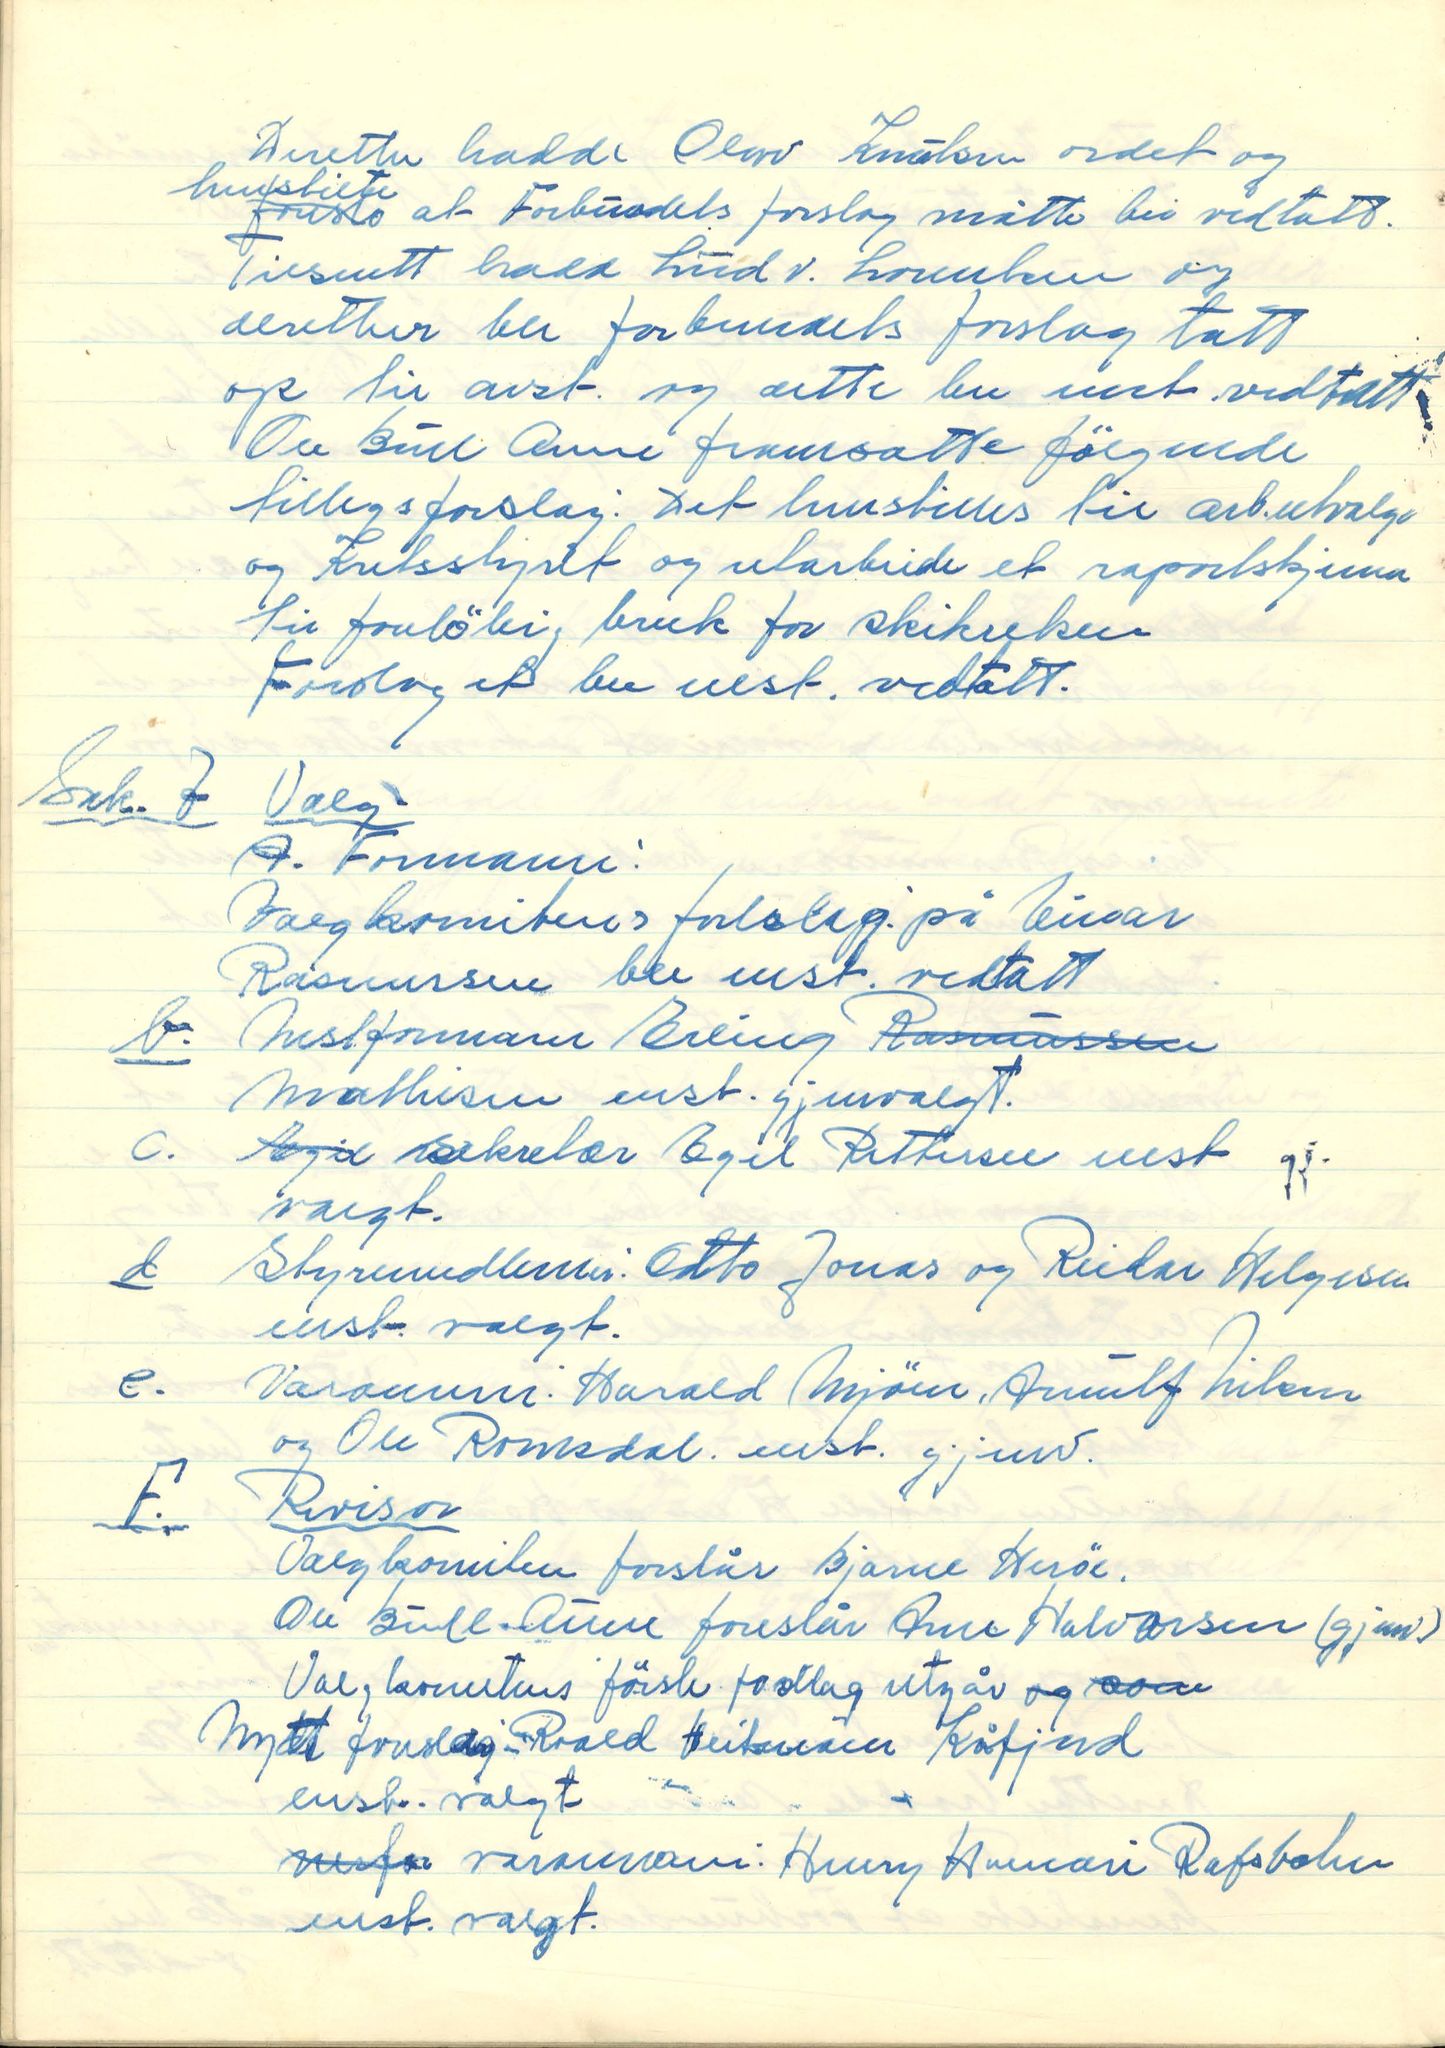 Deretter hadde Olav Knutsen ordet og
henstilte
foreslo at Forbundets forslag måtte bli vedtatt.
Tilslutt hadde Ludv. Lorentsen og
deretter ble forbundets forslag tatt
opp til avst. og dette ble enst. vedtatt.
Ole Bull Aune framsatte följende
tilleggsforslag: Det henstilles til arb.utvalge
og Kretsstyret og utarbeide et raportskjema
til foreløbig bruk for skikretsen
Forslaget ble enst. vedtatt.
Sak. 7 Valg
A. Formann:
Valgkomitens forslag på Einar
Rasmussen ble enst. vedtatt
b. Nestformann Erling Rasmussen
Mathisen enst. gjenvalgt.
c. Egil sekretær Egil Pettersen enst gj.
valgt.
d Styremedlemer: Otto Jonas og Reidar Helgesen
enst. valgt.
e. Varamenn: Harald Mjöen, Arnulf Nilsen
og Ole Romsdal. enst. gjenv.
F. Revisor
Valgkomiten forslår Bjarne Heröe.
Ole Bull-Aune foreslår Arne Halvorsen (gjenv.)
Valgkomitens förste forslag utgår og som
Nytt forslag: Roald Kåfjord
enst. valgt
nesfor varamann: Henry Rafsbotn
enst. valgt.